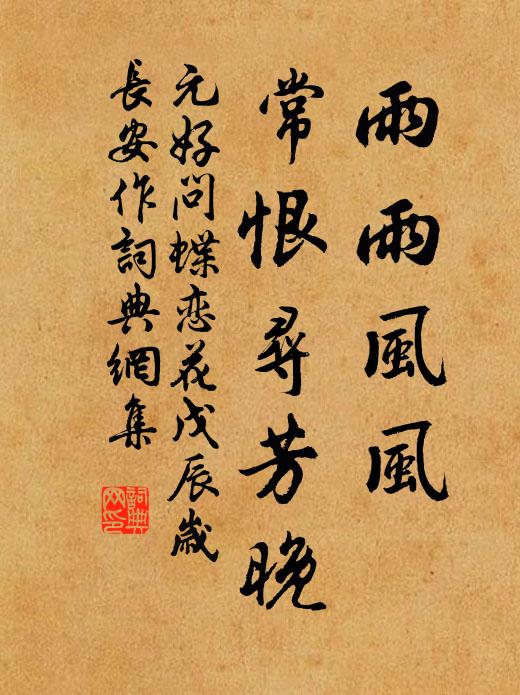 雨雨風風
常恨尋芳晚
元好問蝶恋花戊辰歲
長安作詞典網集
詞典網印